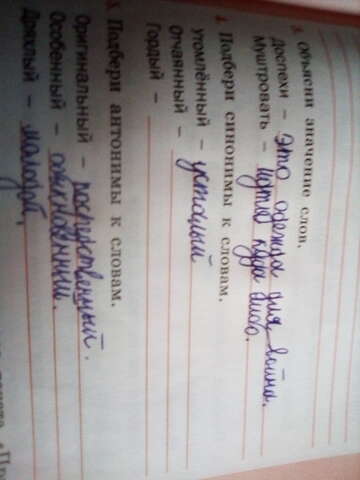 3. Объясни значение слов.
Доспехи – это одежда для война.
Муштровать – идти куда либо.
4. Подбери синонимы к словам.
Утомлённый – уставший
Отчаянный –
Гордый –
5. Подбери антонимы к словам.
Оригинальный – посредственный.
Особенный – обыкновенный.
Дряхлый – молодой,